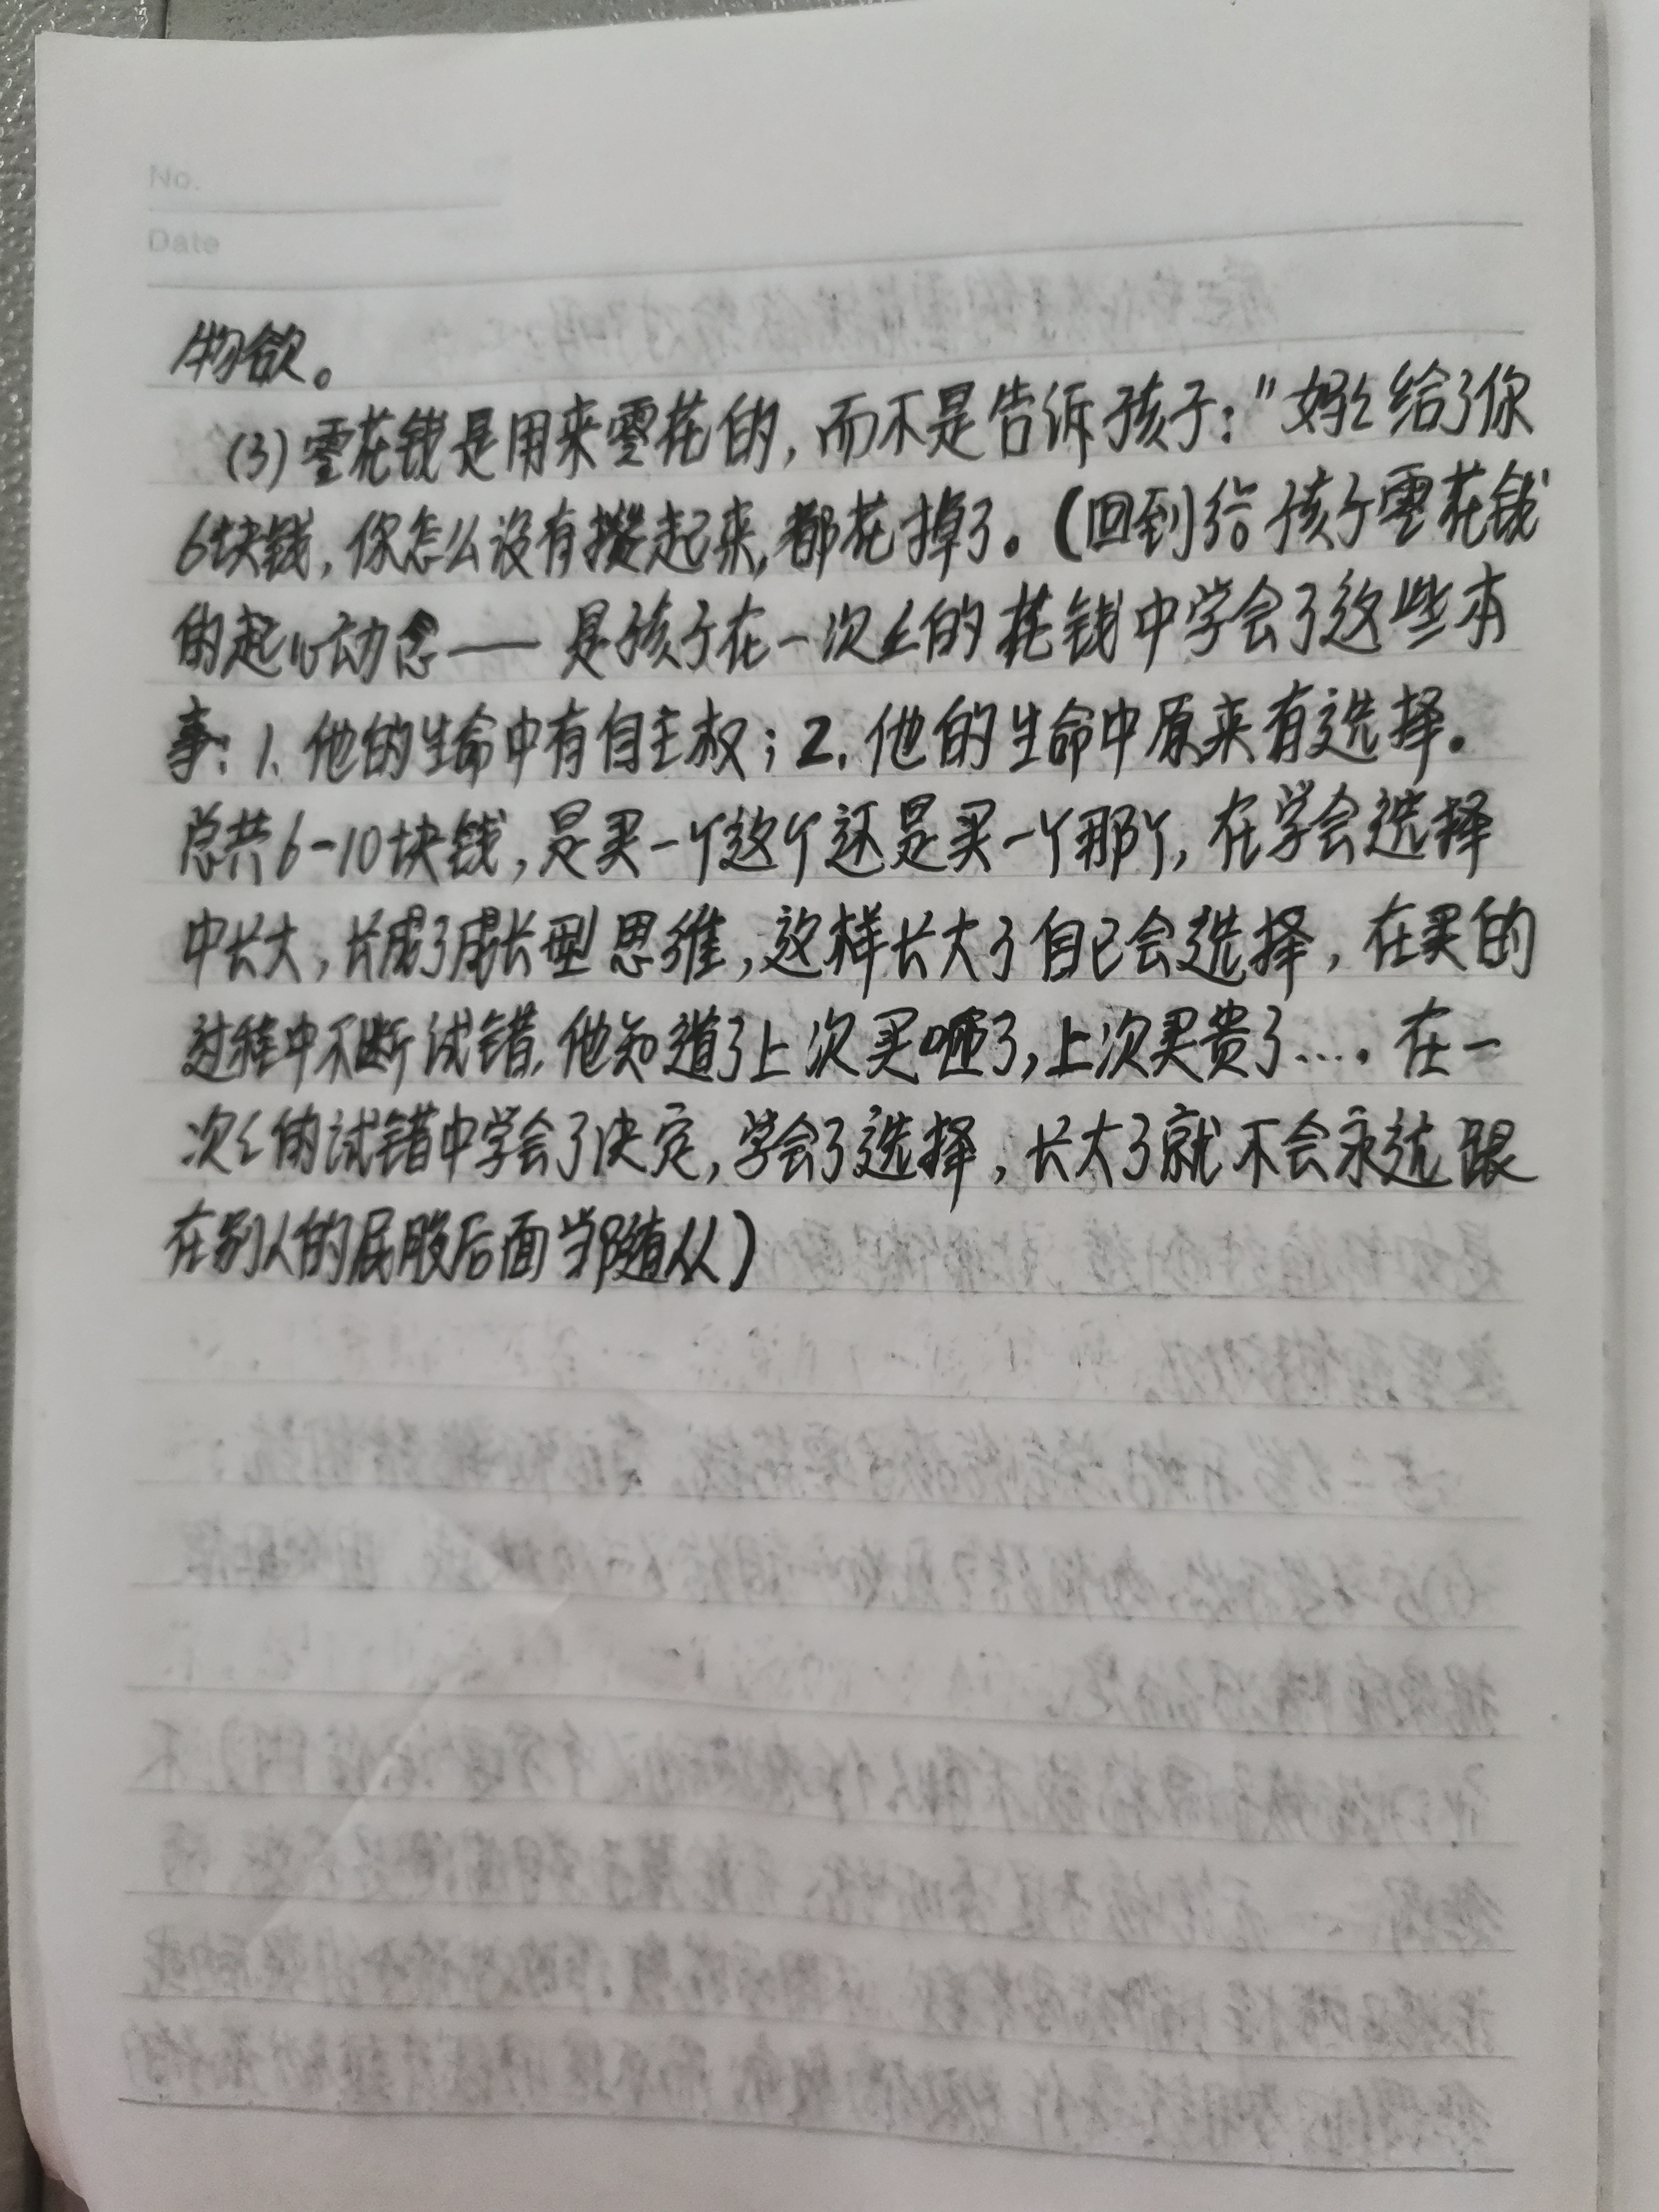 No.
Date
物欲。
(3)零花钱是用来零花的,而不是告诉孩子:"妈々给了你
6块钱,你怎么没有攒起来,都花掉了。(回到给孩子零花钱
的起心动念——是孩子在一次々的花钱中学会了这些本
事:1.他的生命中有自主权;2.他的生命中原来有选择。
总共6-10块钱,是买一个这个还是买一个那个,在学会选择
中长大,长成了成长型思维,这样长大了自己会选择,在买的
过程中不断试错,他知道了上次买哑了,上次买贵了....在一
次々的试错中学会了决定,学会了选择,长大了就不会永远跟
在别人的屁股后面当随从)